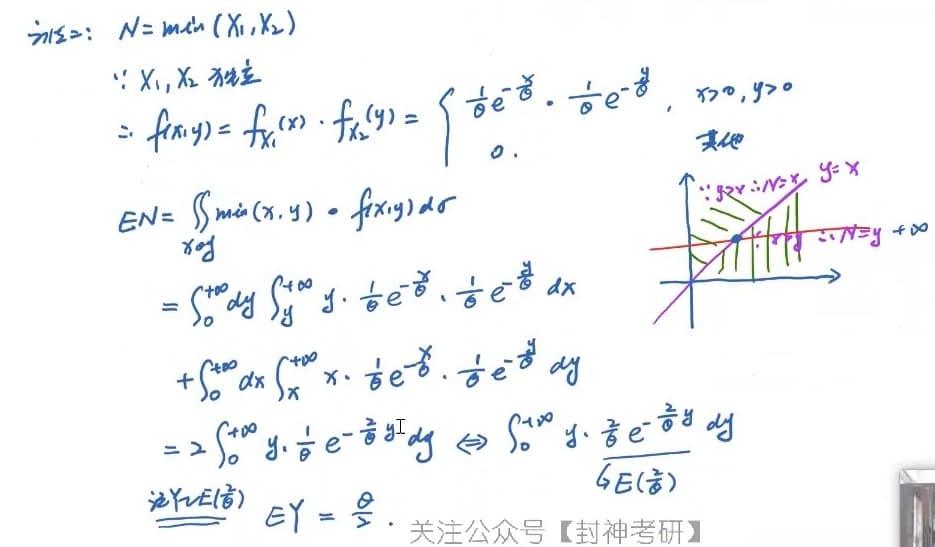 方法二: N = min(X₁,X₂)
∵ X₁,X₂ 独立
∴ f(x,y) = f_{X₁}(x) · f_{X₂}(y) = { 1/θ e^{-x/θ} · 1/θ e^{-y/θ}, x>0, y>0
0. 其他
∵ y>x ∴ N=x y=x
∵ x>y ∴ N=y +∞
EN = ∬_{xoy} min(x,y) · f(x,y)dσ
= ∫₀^{+∞} dy ∫_y^{+∞} y · 1/θ e^{-x/θ} · 1/θ e^{-y/θ} dx
+ ∫₀^{+∞} dx ∫_x^{+∞} x · 1/θ e^{-x/θ} · 1/θ e^{-y/θ} dy
= 2 ∫₀^{+∞} y · 1/θ e^{-2/θ y} dy ⇔ ∫₀^{+∞} y · 2/θ e^{-2/θ y} dy
↳ E(2/θ)
记Y~E(2/θ) EY = θ/2 .
关注公众号【封神考研】